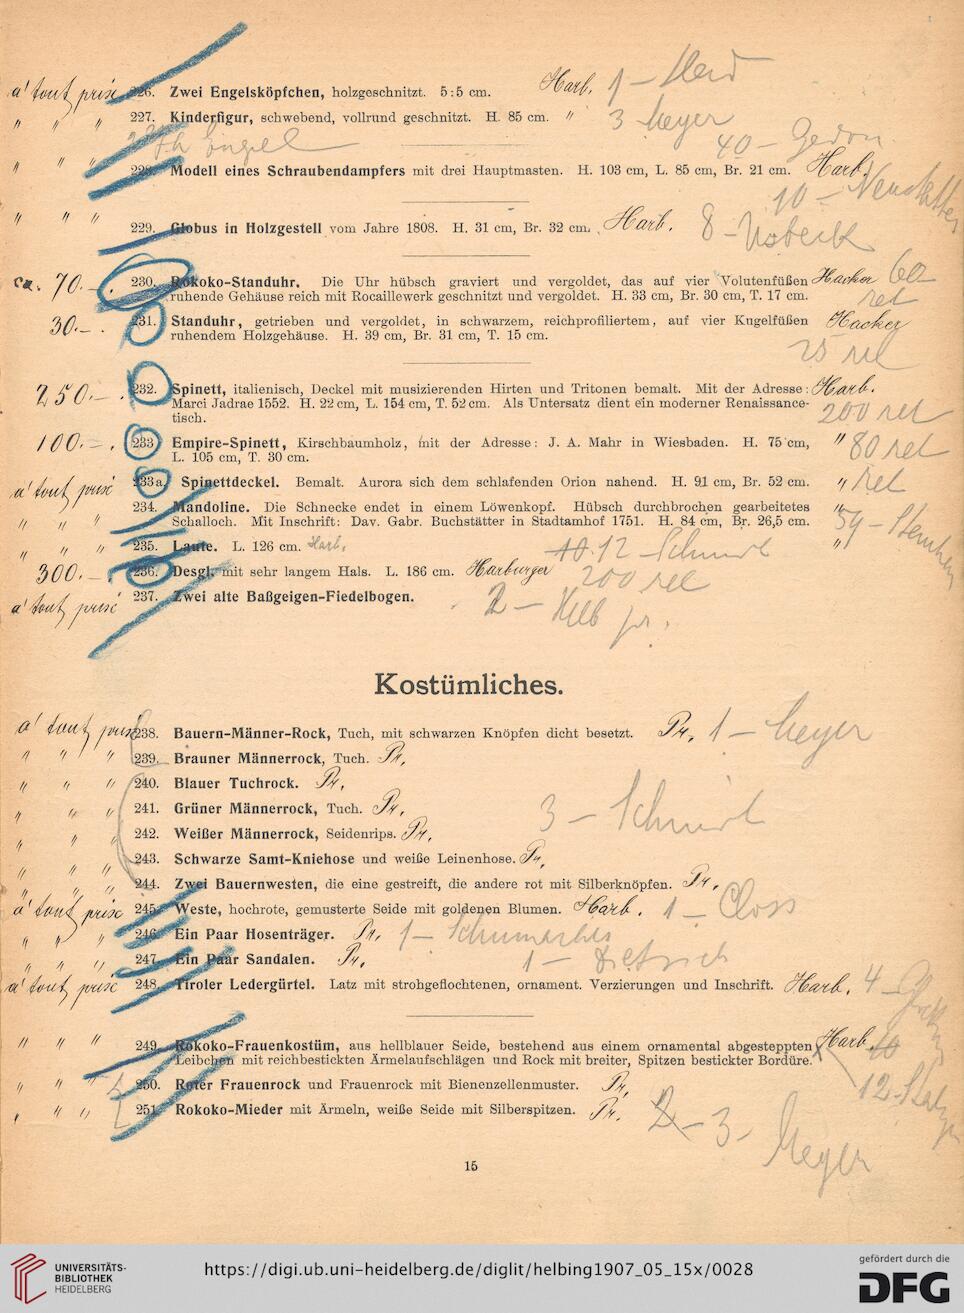 à tout prix 226. Zwei Engelsköpfchen, holzgeschnitzt. 5:5 cm. Harb. 1 –
" " " 227. Kinderfigur, schwebend, vollrund geschnitzt. H. 85 cm. " 3 Meyer
Engel 40 – Gedon
" " " 228. Modell eines Schraubendampfers mit drei Hauptmasten. H. 103 cm, L. 85 cm, Br. 21 cm. Harb.
10 –
" " " 229. Globus in Holzgestell vom Jahre 1808. H. 31 cm, Br. 32 cm. Harb. 8 –
ca. 70.– . 230. Rokoko-Standuhr. Die Uhr hübsch graviert und vergoldet, das auf vier Volutenfüßen Hacker 60 –
ruhende Gehäuse reich mit Rocaillewerk geschnitzt und vergoldet. H. 33 cm, Br. 30 cm, T. 17 cm. ret
30.– . 231. Standuhr, getrieben und vergoldet, in schwarzem, reichprofiliertem, auf vier Kugelfüßen Hacker
ruhendem Holzgehäuse. H. 39 cm, Br. 31 cm, T. 15 cm.
25 ret
250.– . 232. Spinett, italienisch, Deckel mit musizierenden Hirten und Tritonen bemalt. Mit der Adresse: Harb.
Marci Jadrae 1552. H. 22 cm, L. 154 cm, T. 52 cm. Als Untersatz dient ein moderner Renaissance- 200 ret
tisch.
100.– . 233 Empire-Spinett, Kirschbaumholz, mit der Adresse: J. A. Mahr in Wiesbaden. H. 75 cm, " 80 ret
L. 105 cm, T. 30 cm.
à tout prix 233a. Spinettdeckel. Bemalt. Aurora sich dem schlafenden Orion nahend. H. 91 cm, Br. 52 cm. " ret
" " " 234. Mandoline. Die Schnecke endet in einem Löwenkopf. Hübsch durchbrochen gearbeitetes "
Schalloch. Mit Inschrift: Dav. Gabr. Buchstätter in Stadtamhof 1751. H. 84 cm, Br. 26,5 cm.
" " " 235. Laute. L. 126 cm. Harb. 10. 12 – Schmidt "
300.– 236. Desgl. mit sehr langem Hals. L. 186 cm. Harburger 200 ret
à tout prix 237. Zwei alte Baßgeigen-Fiedelbogen. 2 –
Kostümliches.
à tout prix 238. Bauern-Männer-Rock, Tuch, mit schwarzen Knöpfen dicht besetzt. Pr. 1 – Meyer
" " " 239. Brauner Männerrock, Tuch. Pr.
" " " 240. Blauer Tuchrock. Pr.
" " " 241. Grüner Männerrock, Tuch. Pr. 3 – Schmidt
" " " 242. Weißer Männerrock, Seidenrips. Pr.
" " " 243. Schwarze Samt-Kniehose und weiße Leinenhose. Pr.
" " " 244. Zwei Bauernwesten, die eine gestreift, die andere rot mit Silberknöpfen. Pr.
à tout prix 245. Weste, hochrote, gemusterte Seide mit goldenen Blumen. Harb. 1 – Closs
" " " 246. Ein Paar Hosenträger. Pr. 1 – Schumacher
" " " 247. Ein Paar Sandalen. Pr. 1 – Dietrich
à tout prix 248. Tiroler Ledergürtel. Latz mit strohgeflochtenen, ornament. Verzierungen und Inschrift. Harb. 4 –
" " " 249. Rokoko-Frauenkostüm, aus hellblauer Seide, bestehend aus einem ornamental abgesteppten Harb.
Leibchen mit reichbestickten Ärmelaufschlägen und Rock mit breiter, Spitzen bestickter Bordüre. 10
" " " 250. Roter Frauenrock und Frauenrock mit Bienenzellenmuster. Pr. 12 –
" " " 251. Rokoko-Mieder mit Ärmeln, weiße Seide mit Silberspitzen. Pr. 2 – 3 – Meyer
15
UNIVERSITÄTS-
BIBLIOTHEK
HEIDELBERG
https://digi.ub.uni-heidelberg.de/diglit/helbing1907_05_15x/0028
gefördert durch die
DFG